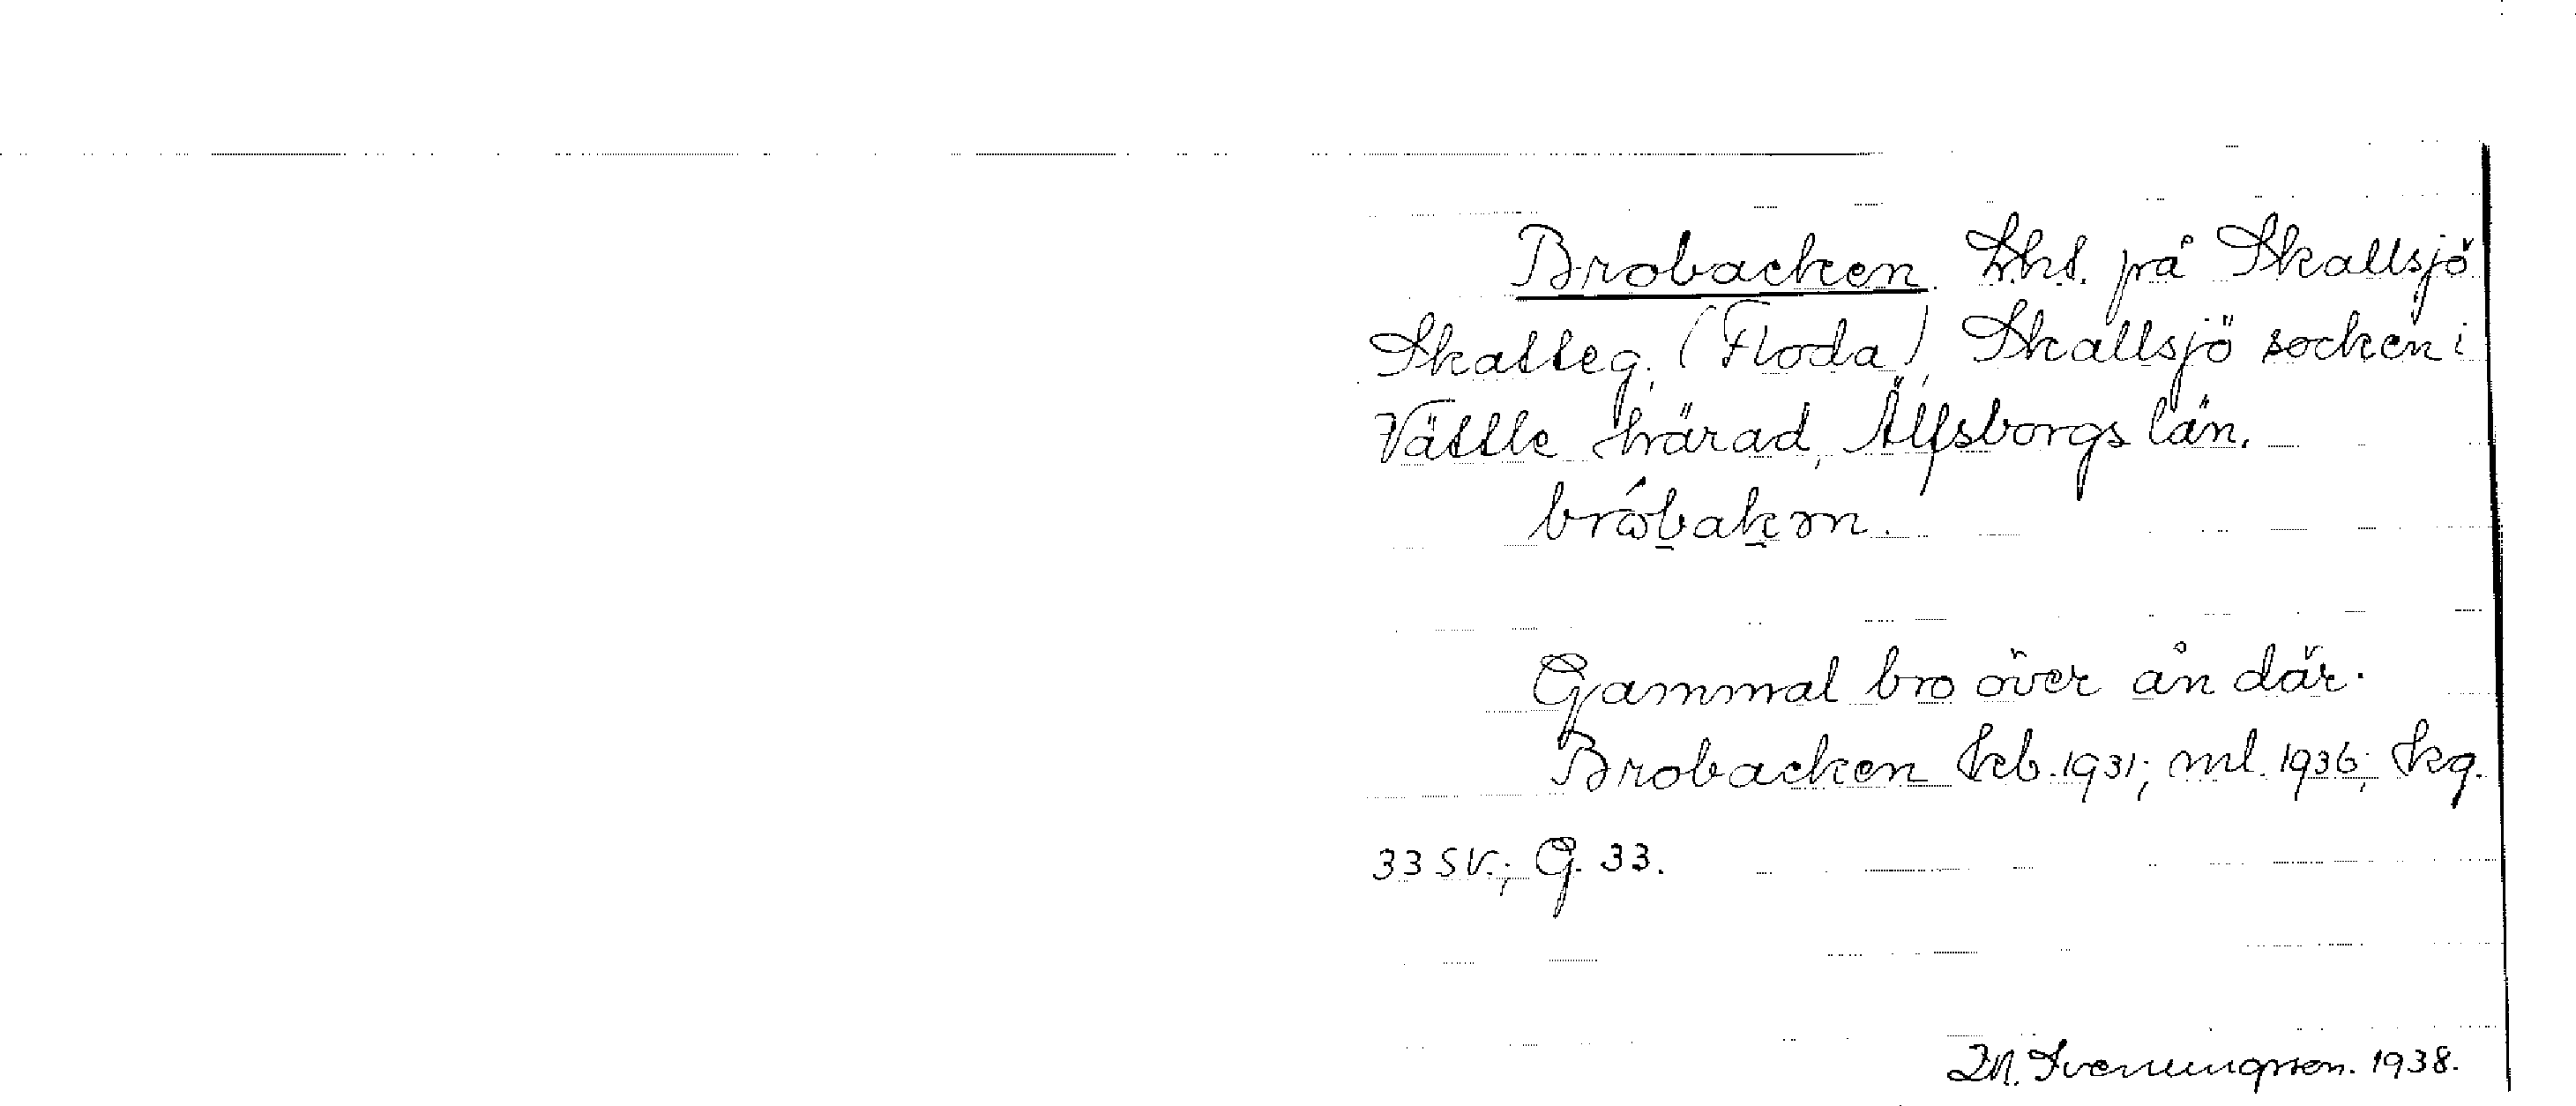 Brobacken. Lht. på Skallsjö
Skatteg. (Floda), Skallsjö socken i
Vättle härad, Älfsborgs län.
bróbakən.
Gammal bro över ån där.
Brobacken kb. 1931; ml. 1936; Skg.
33 SV.; G. 33.
Svenningsson. 1938.